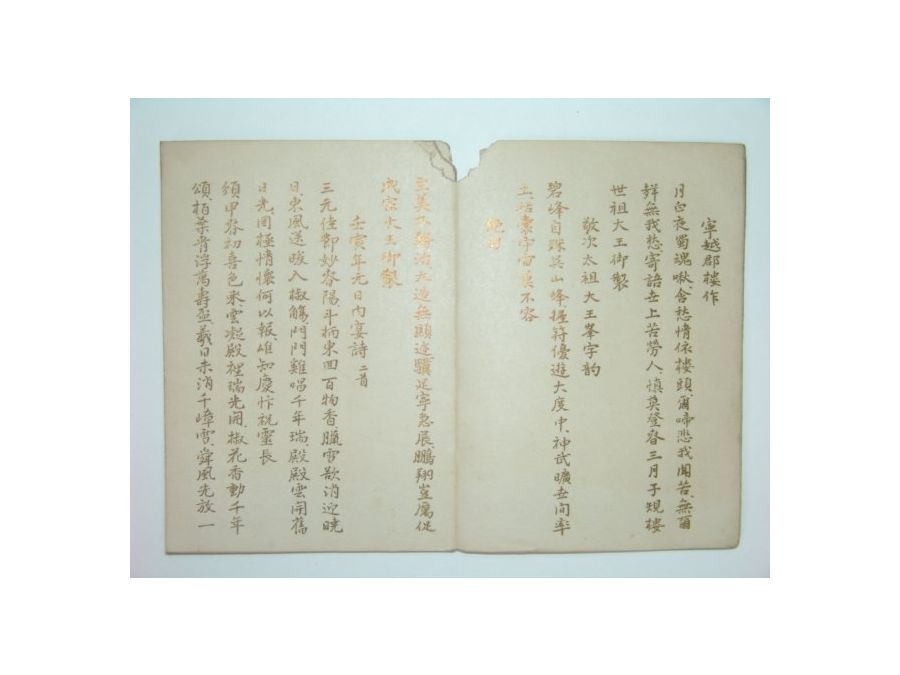 寧越郡樓作
月白夜蜀魂啾、含愁情依樓頭、爾啼悲我聞苦、無爾
聲無我愁、寄語世上苦勞人、愼莫登春三月子規樓
世祖大王御製
敬次太祖大王峯字韵
碧峰自殊吳山峰、握符優遊大度中、神武曠世間率
土、宇宙不容
絶句
至美治大造無願逢驥足寧思展鵬翔豈厲促
成宗大王御製
壬寅年元日內宴詩 二首
三元佳節妙春陽、斗柄東回百物香、臘雪欲消迎曉
日、東風送暖入椒觴、門門雞唱千年瑞、殿殿雲開舊
日光、罔極情懷何以報、雄知慶忭祝靈長
須甲春初喜色來、雲凝殿裡瑞光開、椒花香動千年
頌、栢葉膏浮萬壽盃、羲日未消千嶂雪、舜風先放一